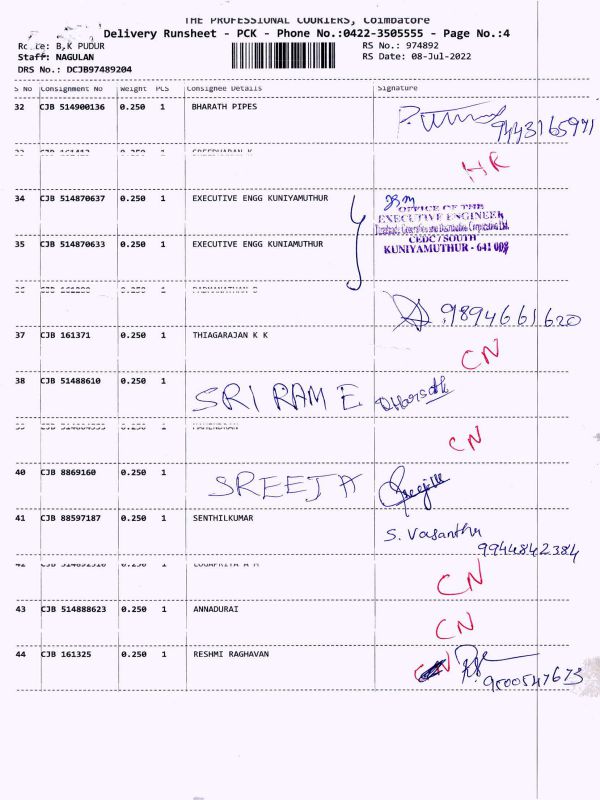 THE PROFESSIONAL COURIERS, Coimbatore
Delivery Runsheet - PCK - Phone No.:0422-3505555 - Page No.:4
Route: B,K PUDUR RS No.: 974892
Staff: NAGULAN RS Date: 08-Jul-2022
DRS No.: DCJB97489204
S No Consignment No Weight PCS Consignee Details Signature
32 CJB 514900136 0.250 1 BHARATH PIPES
9443165971
HR
34 CJB 514870637 0.250 1 EXECUTIVE ENGG KUNIYAMUTHUR
OFFICE OF THE
EXECUTIVE ENGINEER
35 CJB 514870633 0.250 1 EXECUTIVE ENGG KUNIAMUTHUR
CEDC / SOUTH
KUNIYAMUTHUR - 641 008
9894661620
37 CJB 161371 0.250 1 THIAGARAJAN K K
CN
38 CJB 51488610 0.250 1
SRI RAM E
CN
40 CJB 8869160 0.250 1
SREEJA
41 CJB 88597187 0.250 1 SENTHILKUMAR
S. Vasantha
9944842384
CN
43 CJB 514888623 0.250 1 ANNADURAI
CN
44 CJB 161325 0.250 1 RESHMI RAGHAVAN
9500547673